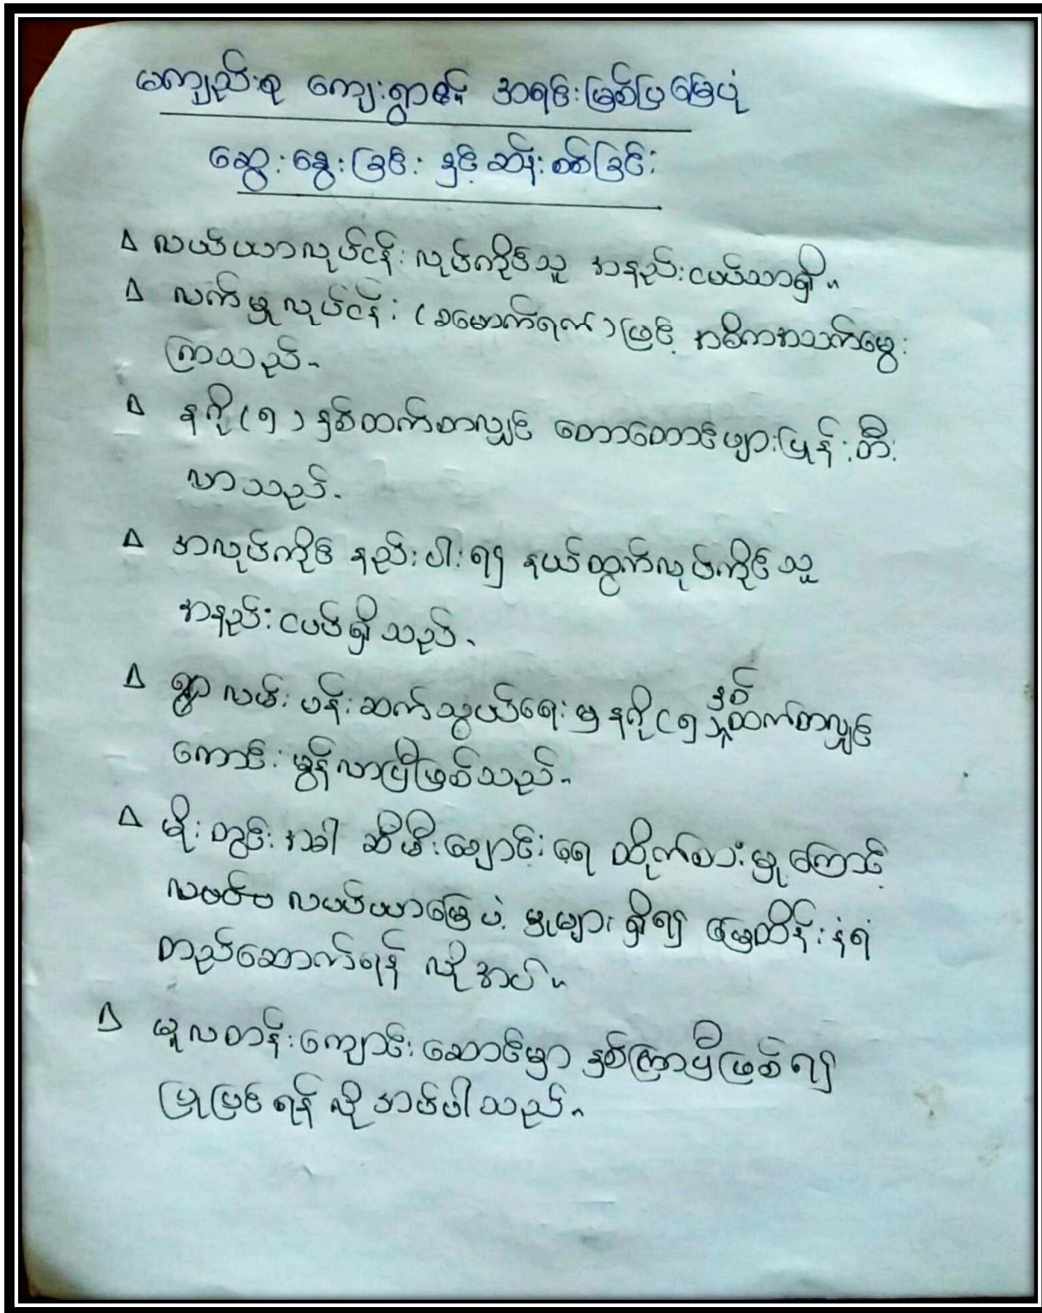 မကျည်းစု ကျေးရွာ၏ အရင်းမြစ်ပြမြေပုံ
ဆွေးနွေးခြင်း နှင့် ဆန်းစစ်ခြင်း
လယ်ယာလုပ်ငန်း လုပ်ကိုင်သူ အနည်းငယ်သာရှိ။
လက်မှုလုပ်ငန်း (ခမောက်ရက်) ဖြင့် အဓိကအသက်မွေး
ကြသည်။
နဂို (၅) နှစ်ထက်စာလျှင် တောတောင်များပြုန်းတီး
လာသည်။
အလုပ်ကိုင် နည်းပါး၍ နယ်ထွက်လုပ်ကိုင်သူ
အနည်းငယ်ရှိသည်။
ရွာလမ်းပန်းဆက်သွယ်ရေးမှ နဂို (၅) နှစ်ထက်စာလျှင်
ကောင်းမွန်လာပြီဖြစ်သည်။
မိုးတွင်းအခါ ဆီမီးချောင်းရေ တိုက်စားမှုကြောင့်
လယ်ယာမြေပုံ့မှုများရှိ၍ မြေထိန်းနံရံ
တည်ဆောက်ရန် လိုအပ်။
မူလတန်းကျောင်းဆောင်မှာ နှစ်ကြာပြီဖြစ်၍
ပြုပြင်ရန် လိုအပ်ပါသည်။